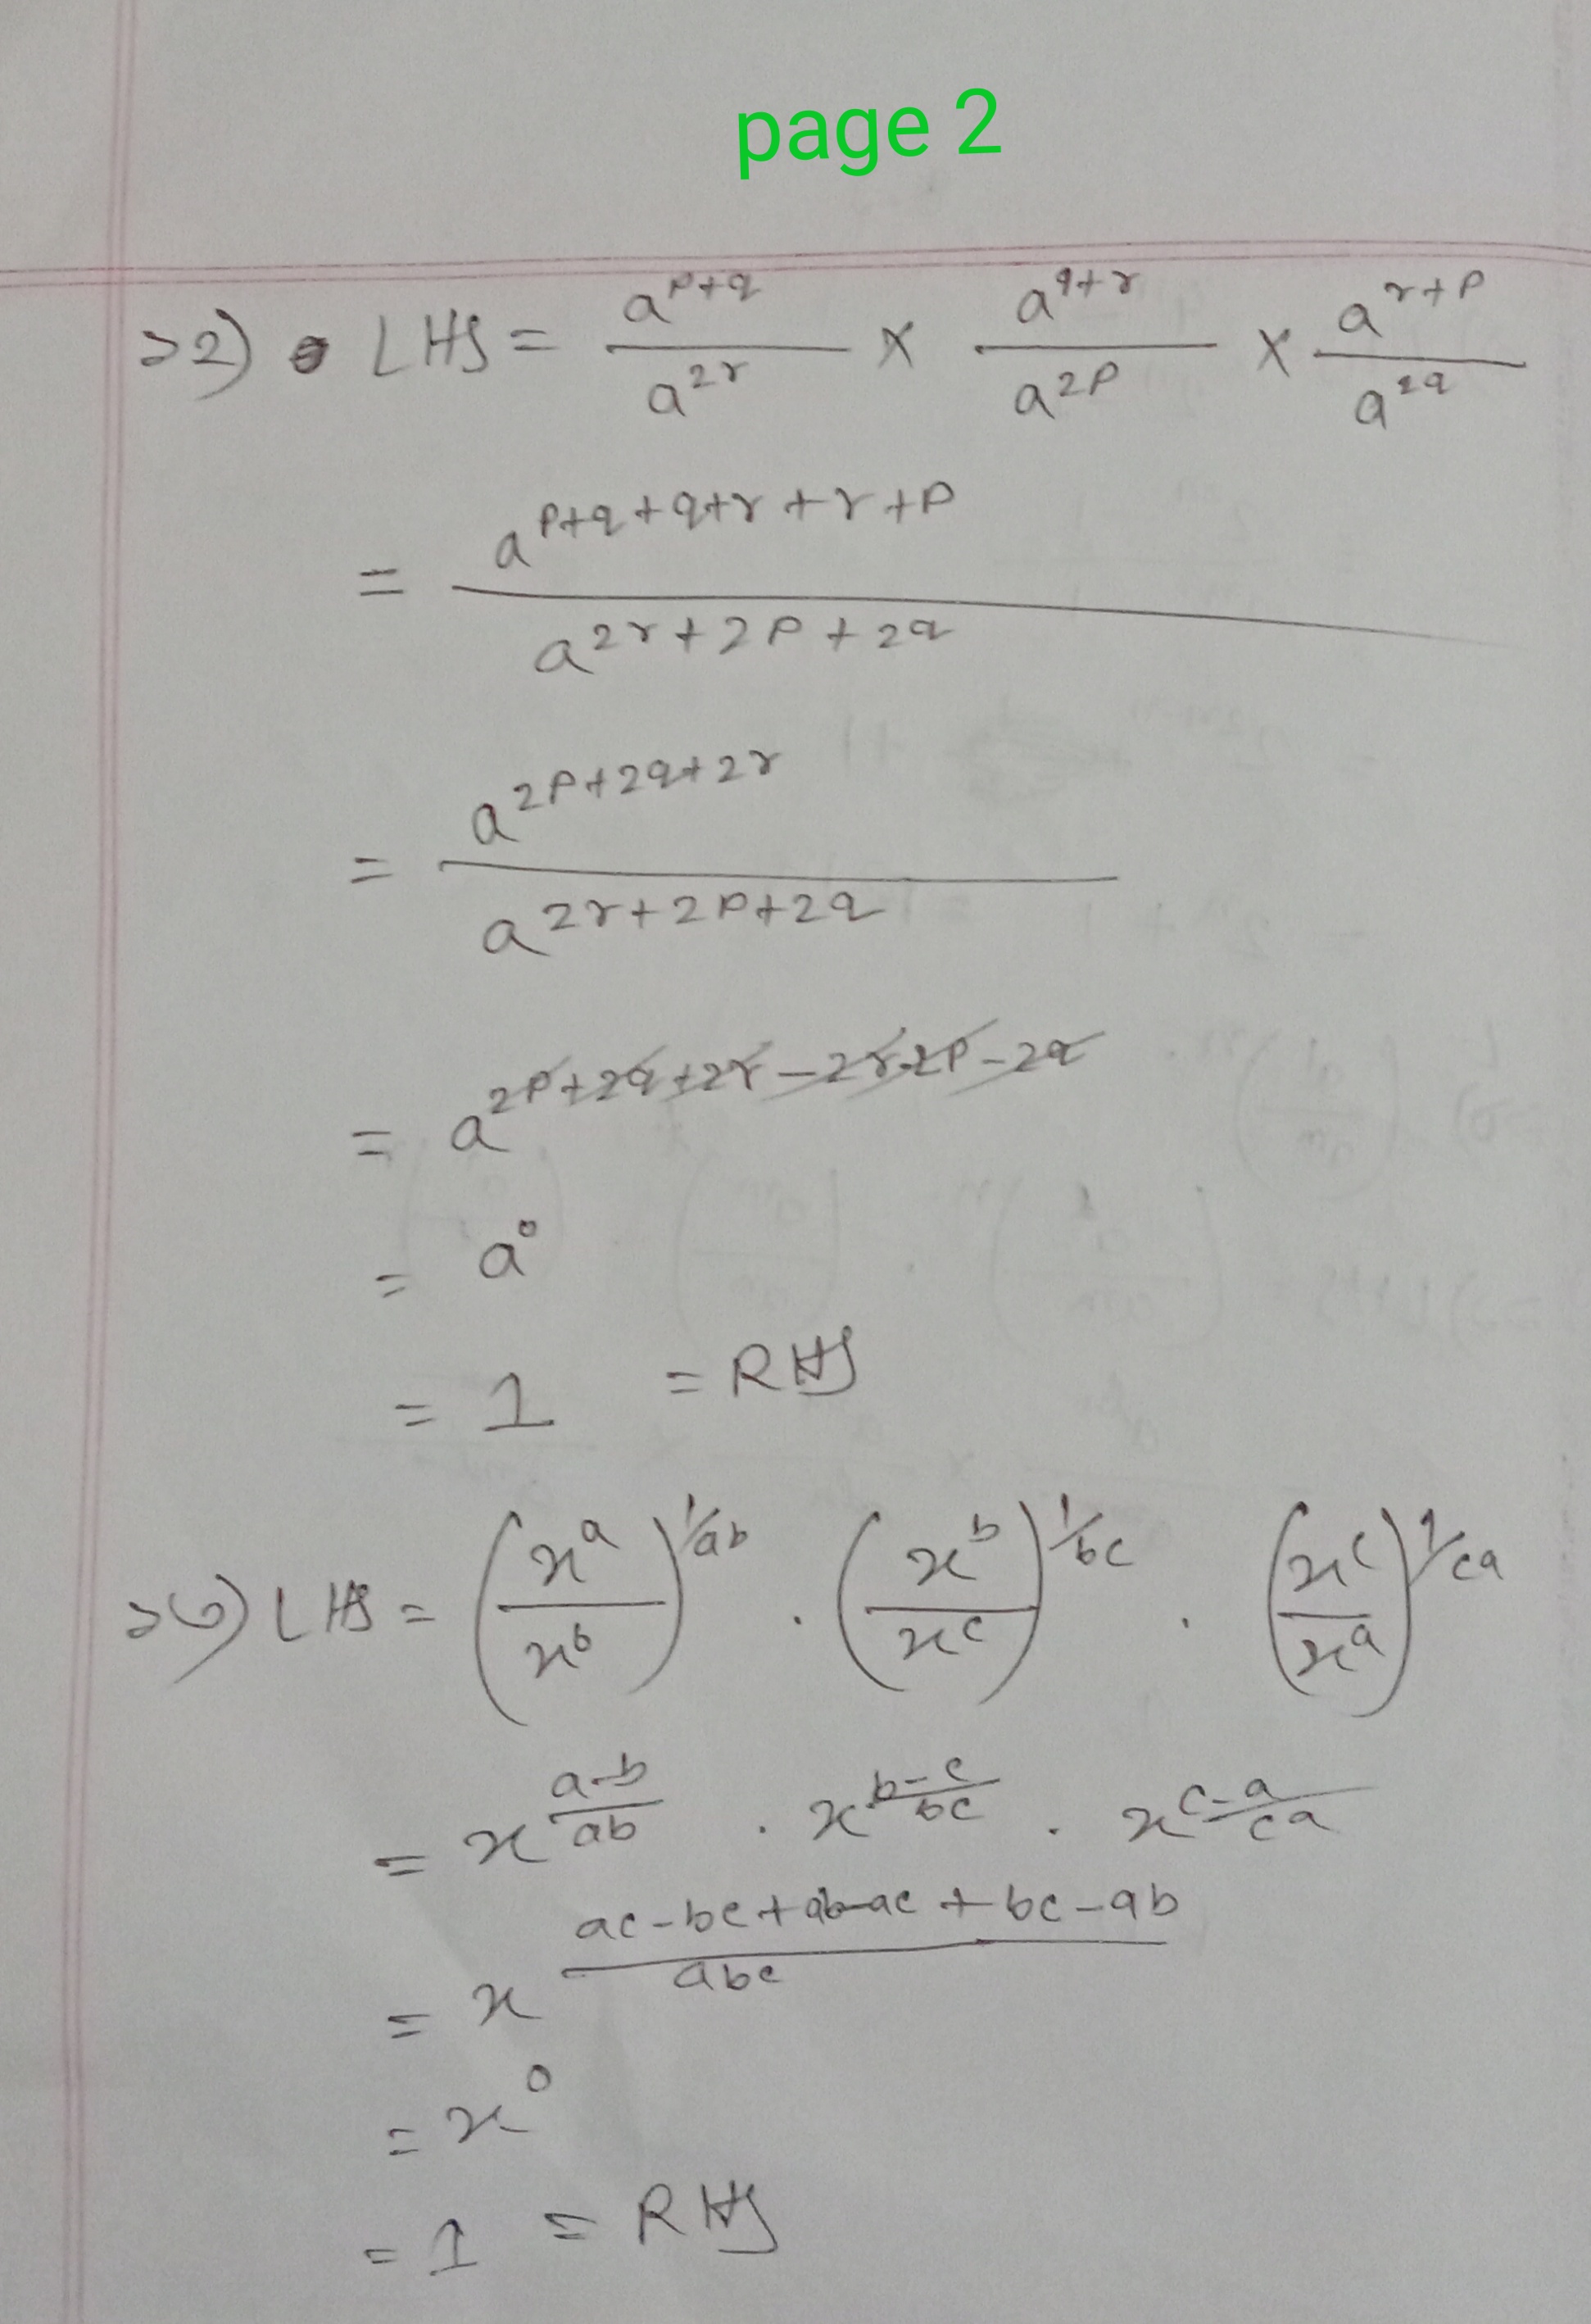 page 2
>2) LHS = a^{p+q}/a^{2r} × a^{q+r}/a^{2p} × a^{r+p}/a^{2q}
= a^{p+q+q+r+r+p}/a^{2r+2p+2q}
= a^{2p+2q+2r}/a^{2r+2p+2q}
= a^{2p+2q+2r-2r-2p-2q}
= a^0
= 1 = RHS
>6) LHS = (x^a/x^b)^{1/ab} . (x^b/x^c)^{1/bc} . (x^c/x^a)^{1/ca}
= x^{(a-b)/ab} . x^{(b-c)/bc} . x^{(c-a)/ca}
= x^{(ac-bc+ab-ac+bc-ab)/abc}
= x^0
= 1 = RHS